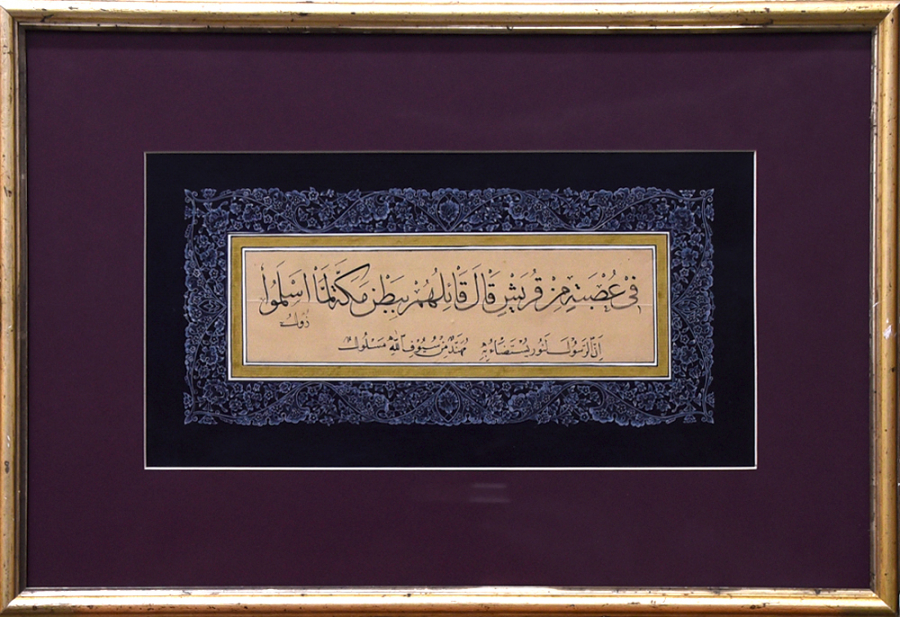 فِي عُصْبَةٍ مِنْ قُرَيْشٍ قَالَ قَائِلُهُمْ بِبَطْنِ مَكَّةَ لَمَّا اَسْلَمُوا
زولوا
اِنَّ الرَّسُولَ لَنُورٌ يُسْتَضَاءُ بِهِ مُهَنَّدٌ مِنْ سُيُوفِ اللهِ مَسْلُولٌ